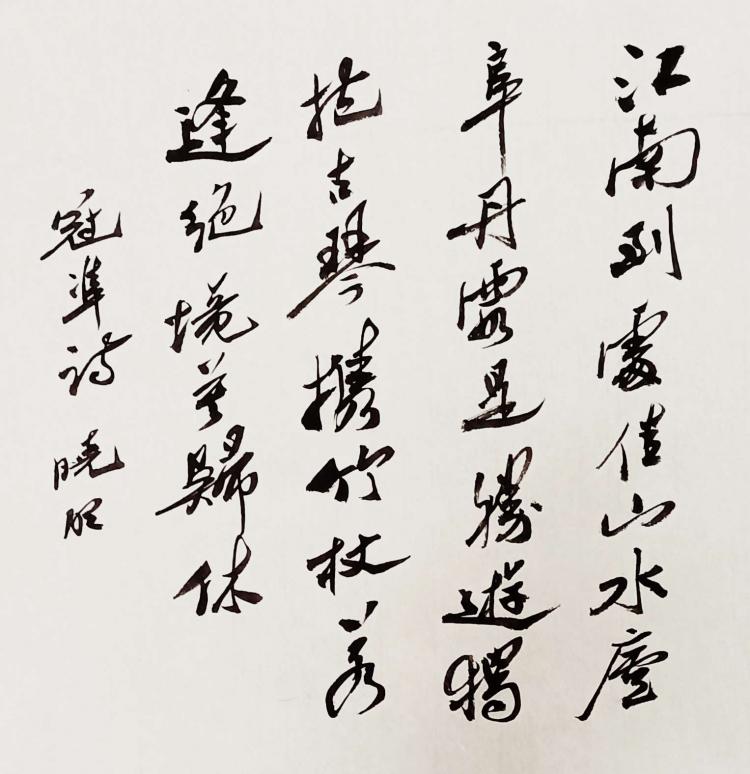 江南到處佳山水廬
阜丹霞是勝遊獨
抱古琴攜竹杖若
逢絕境莫歸休
寇準詩 曉